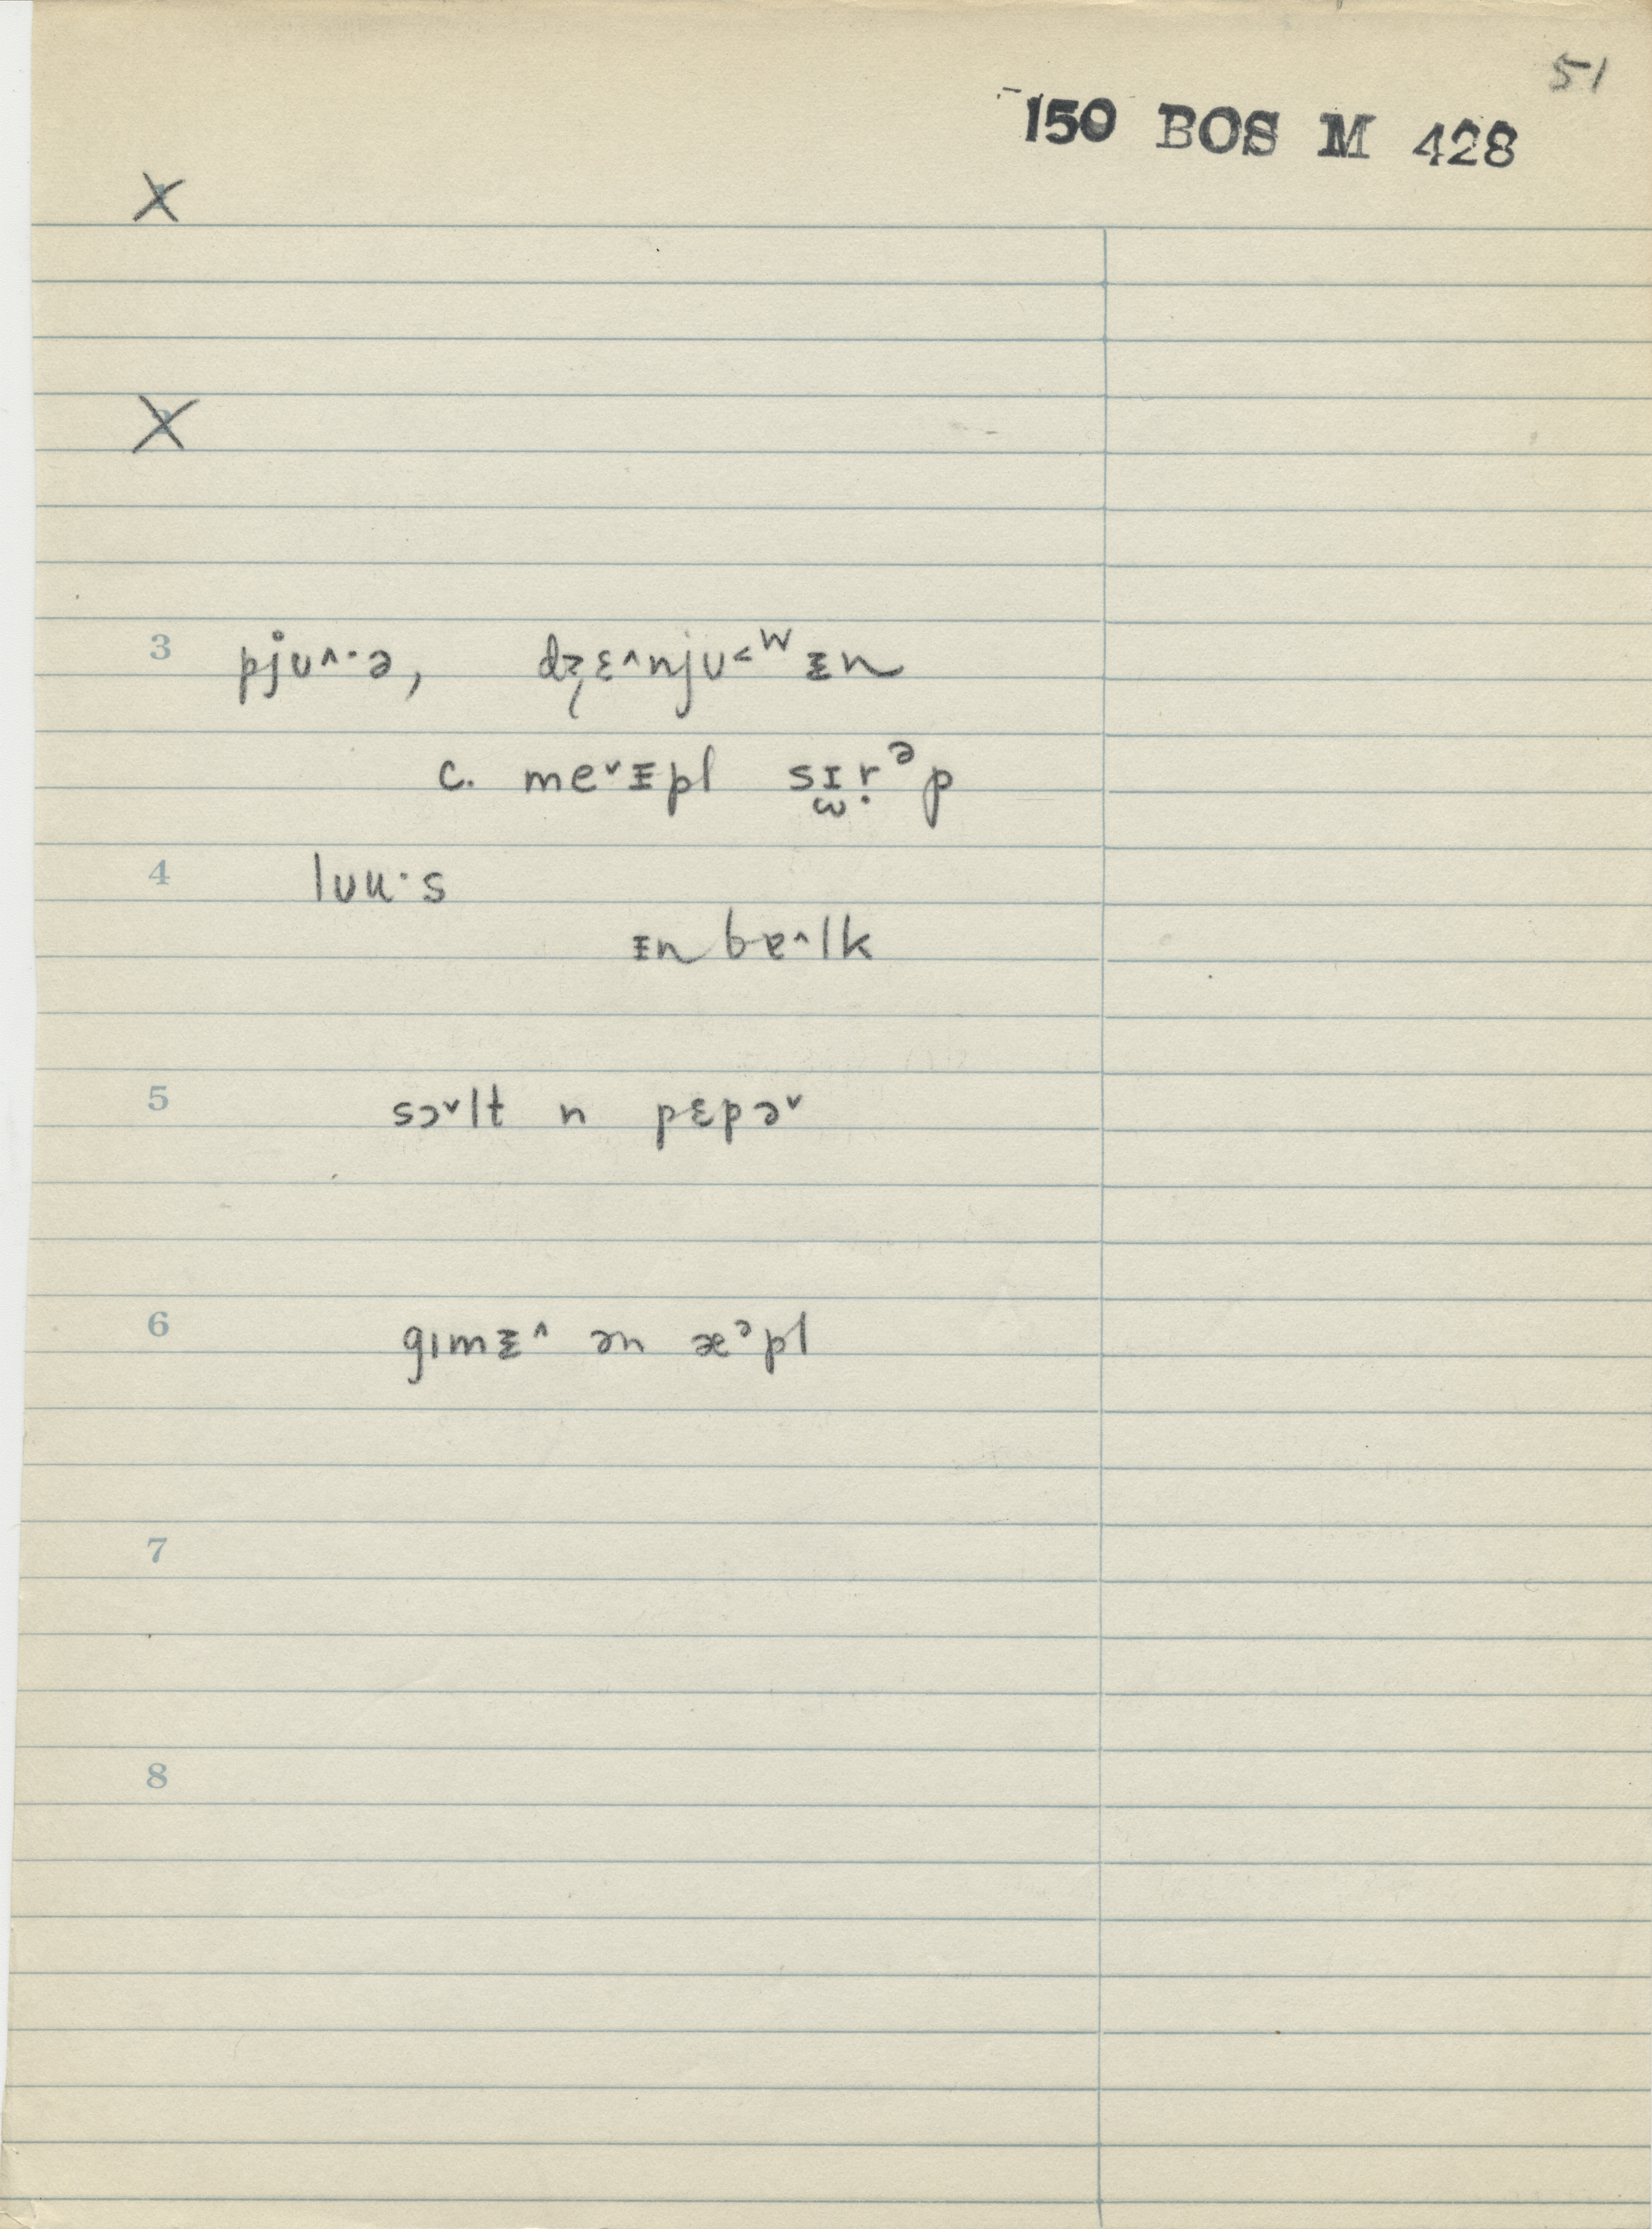 51
150 BOS M 428
X
X
3 pj̊ʊ^·ə, dʒɛ^njʊ˂ᵂᵻn
c. me˅ᵻpl sɪ̫ṛᵊp
4 lʊu·s
ᵻn bɐ^lk
5 sɔ˅lt n pɛpə˅
6 gɪmᵻ^ ən æᵊpl
7
8